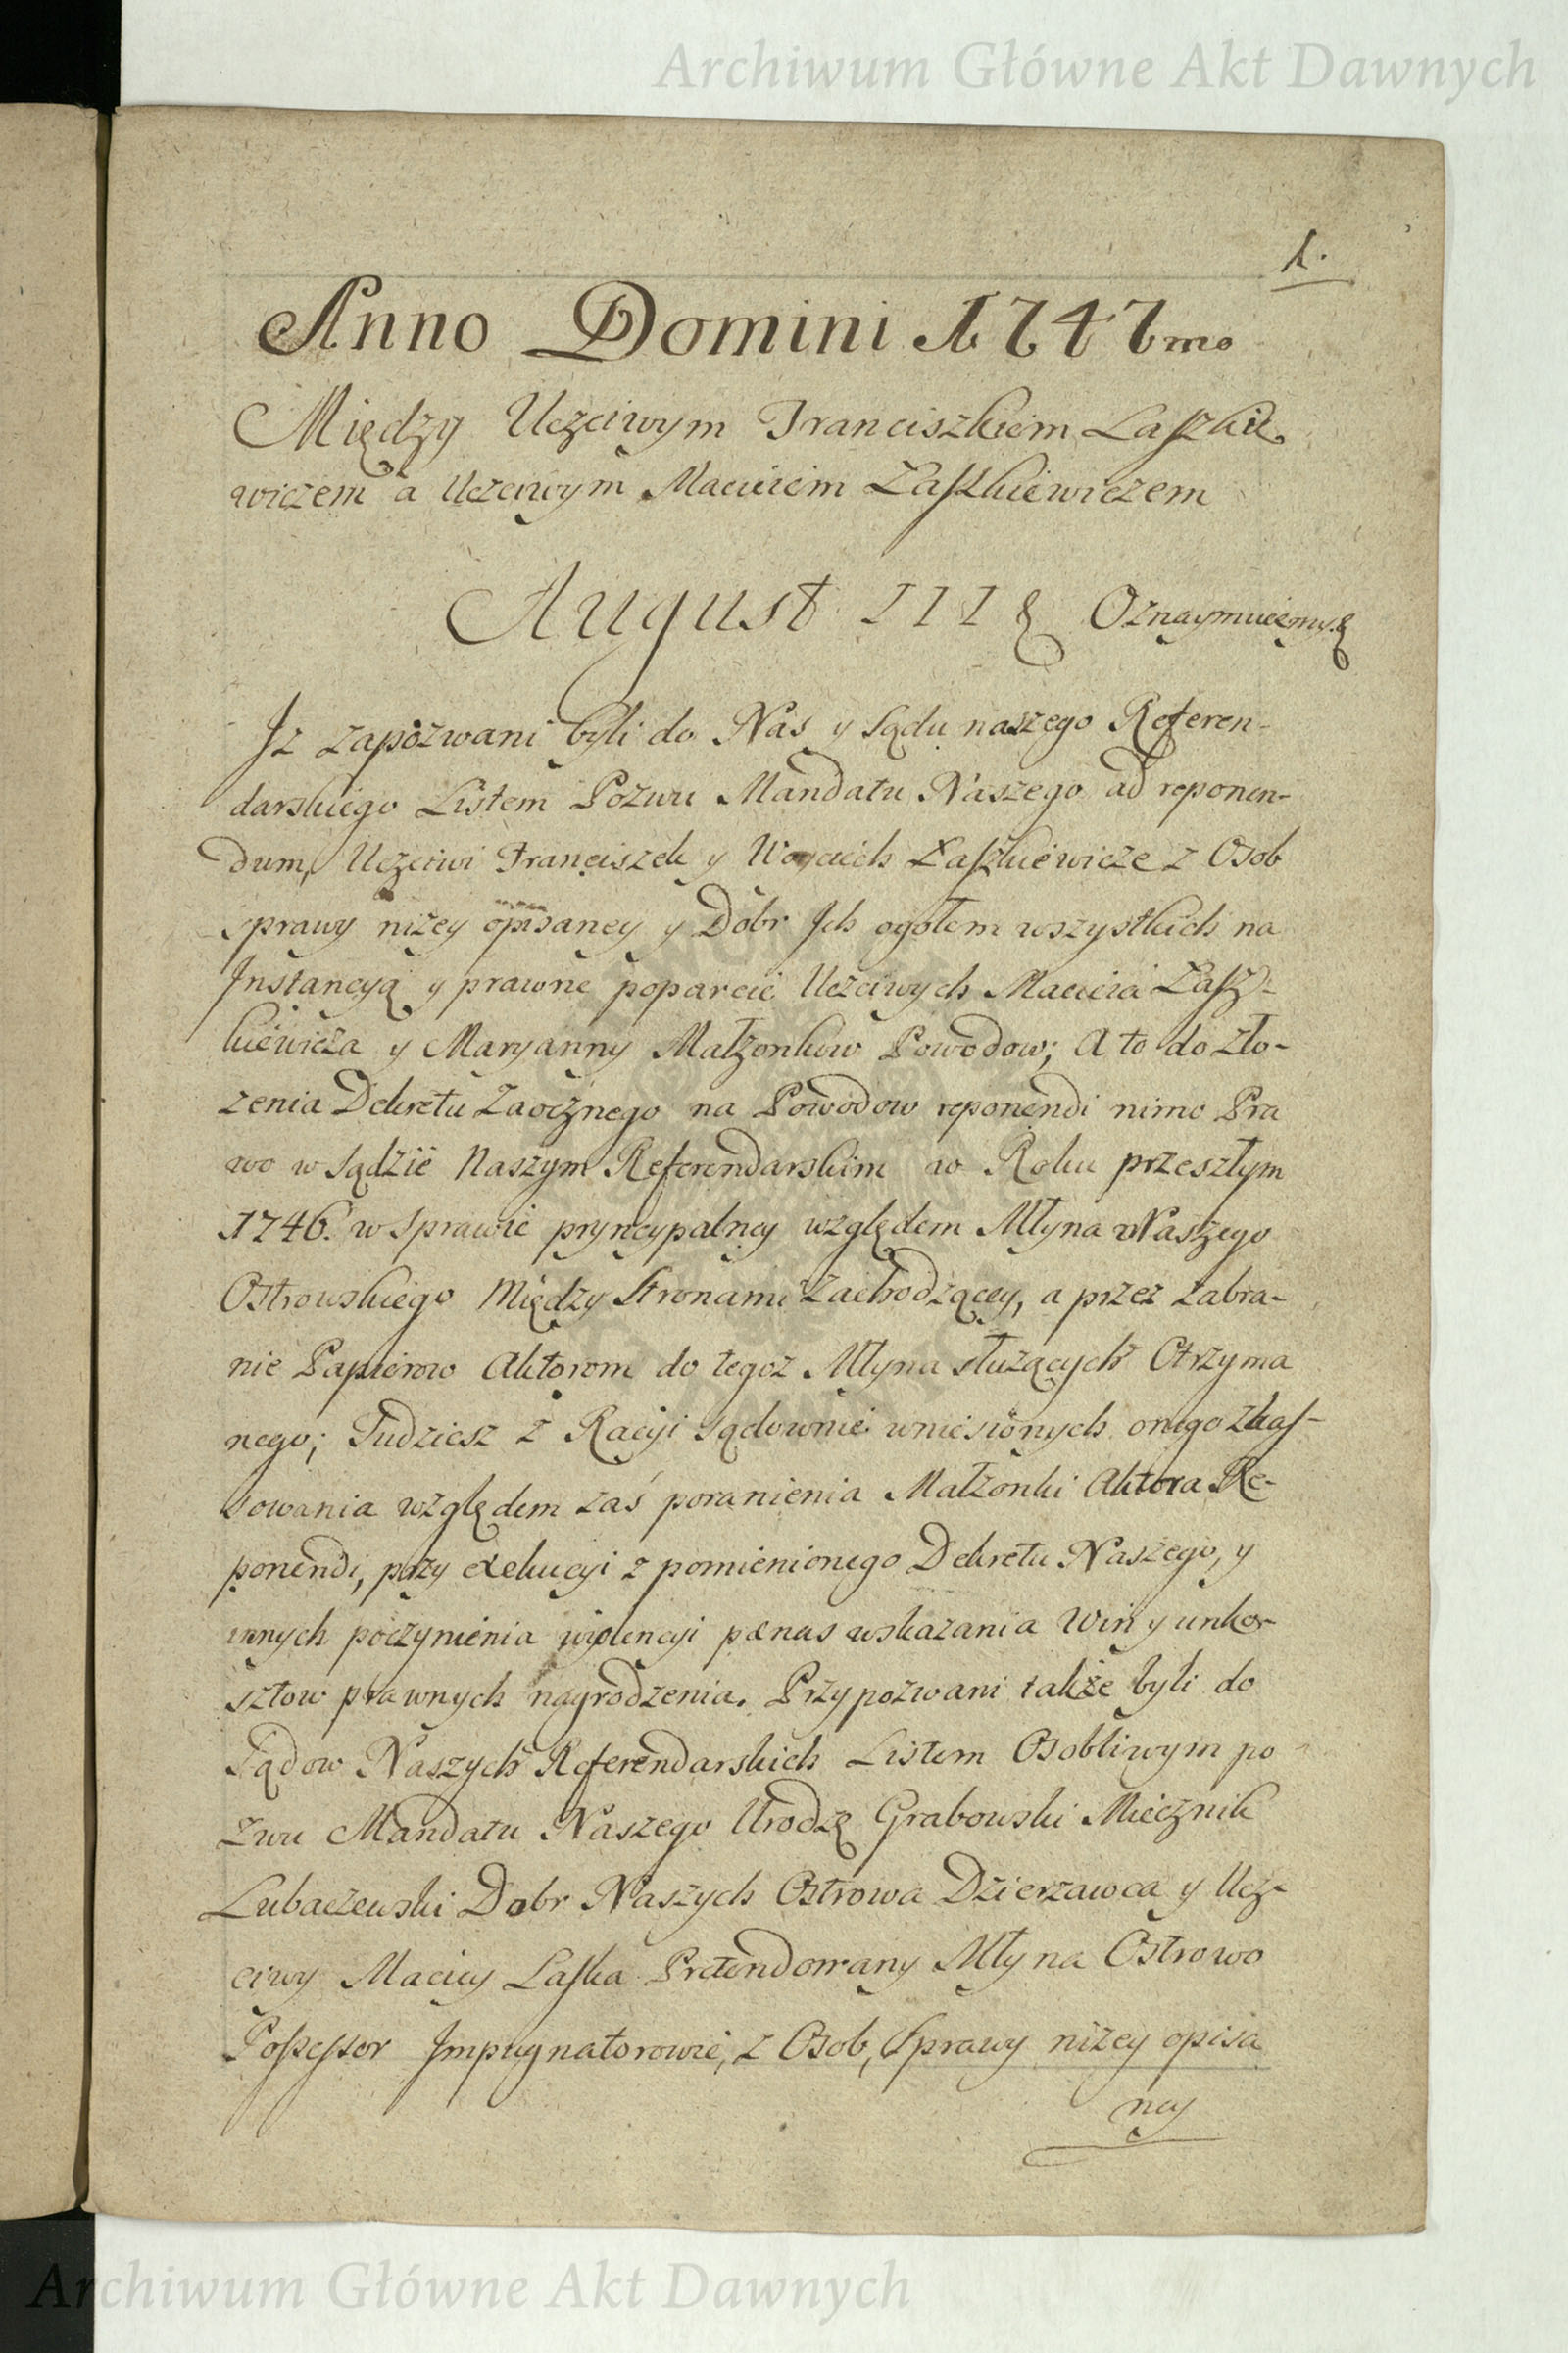 Archiwum Główne Akt Dawnych
1.
Anno Domini 1747mo
Między Uczciwym Franciszkiem Laszkie
wiczem a Uczciwym Macieiem Łaszkiewiczem
August III & Oznaymuiemy &
Iz zapozwani byli do Nas y Sądu naszego Referen-
darskiego Listem Pozwu Mandatu Naszego ad reponen-
dum, Uczciwi Franciszek y Woyciech Łaszkiewicze z Osob
sprawy niżey opisaney y Dobr Ich ogołem wszystkich na
Instancyą y prawne poparcie Uczciwych Macieia Łasz-
kiewicza y Maryanny Małżonkow Powodow; A to do zło-
zenia Dekretu Zaocznego na Powodow reponendi nimo Pra
wo w Sądzie Naszym Referendarskim w Roku przeszłym
1746. w Sprawie pryncypalney względem Młyna Naszego
Ostrowskiego Między Stronami Zachodzącey, a przez zabra-
nie Papierow Aktorom do tegoz Młyna służących Otrzyma
nego; Tudziesz z Racyi sądownie wniesionych onego zkas-
sowania względem zaś poranienia Małżonki Aktora Re-
ponendi, przy exekucyi z pomienionego Dekretu Naszego, y
innych poczynienia violencyi pænas wskazania Win y unko-
sztow prawnych nagrodzenia. Przypozwani także byli do
Sądow Naszych Referendarskich Listem Osobliwym po
zwu Mandatu Naszego Urodz Grabowski Miecznik
Lubaczewski Dobr Naszych Ostrowa Dzierzawca y Ucz-
ciwy Maciey Laska Pretendowany Młyna Ostrowo
Possessor Impugnatorowie, z Osob, Sprawy niżey opisa
ney
Archiwum Główne Akt Dawnych